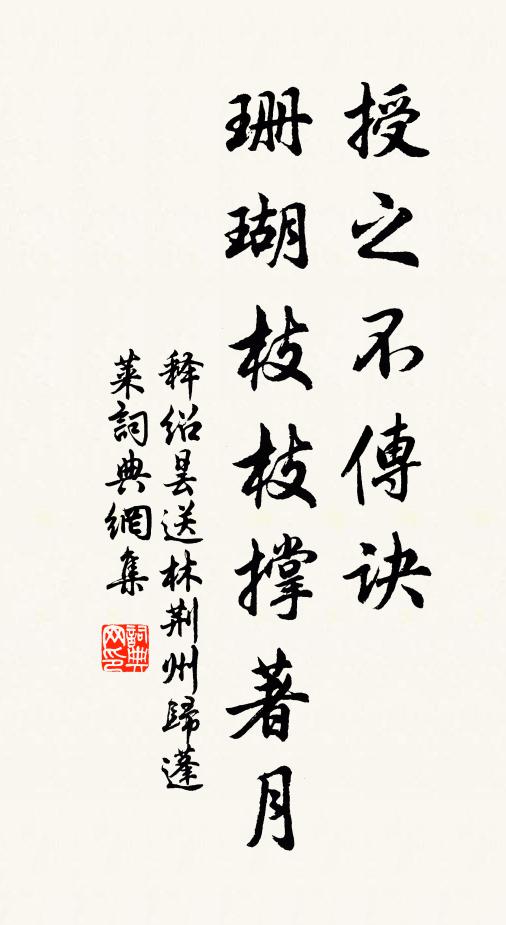 授之不傳訣
珊瑚枝枝撐著月
释绍昙送林荆州歸蓬
萊詞典網集
詞典网印